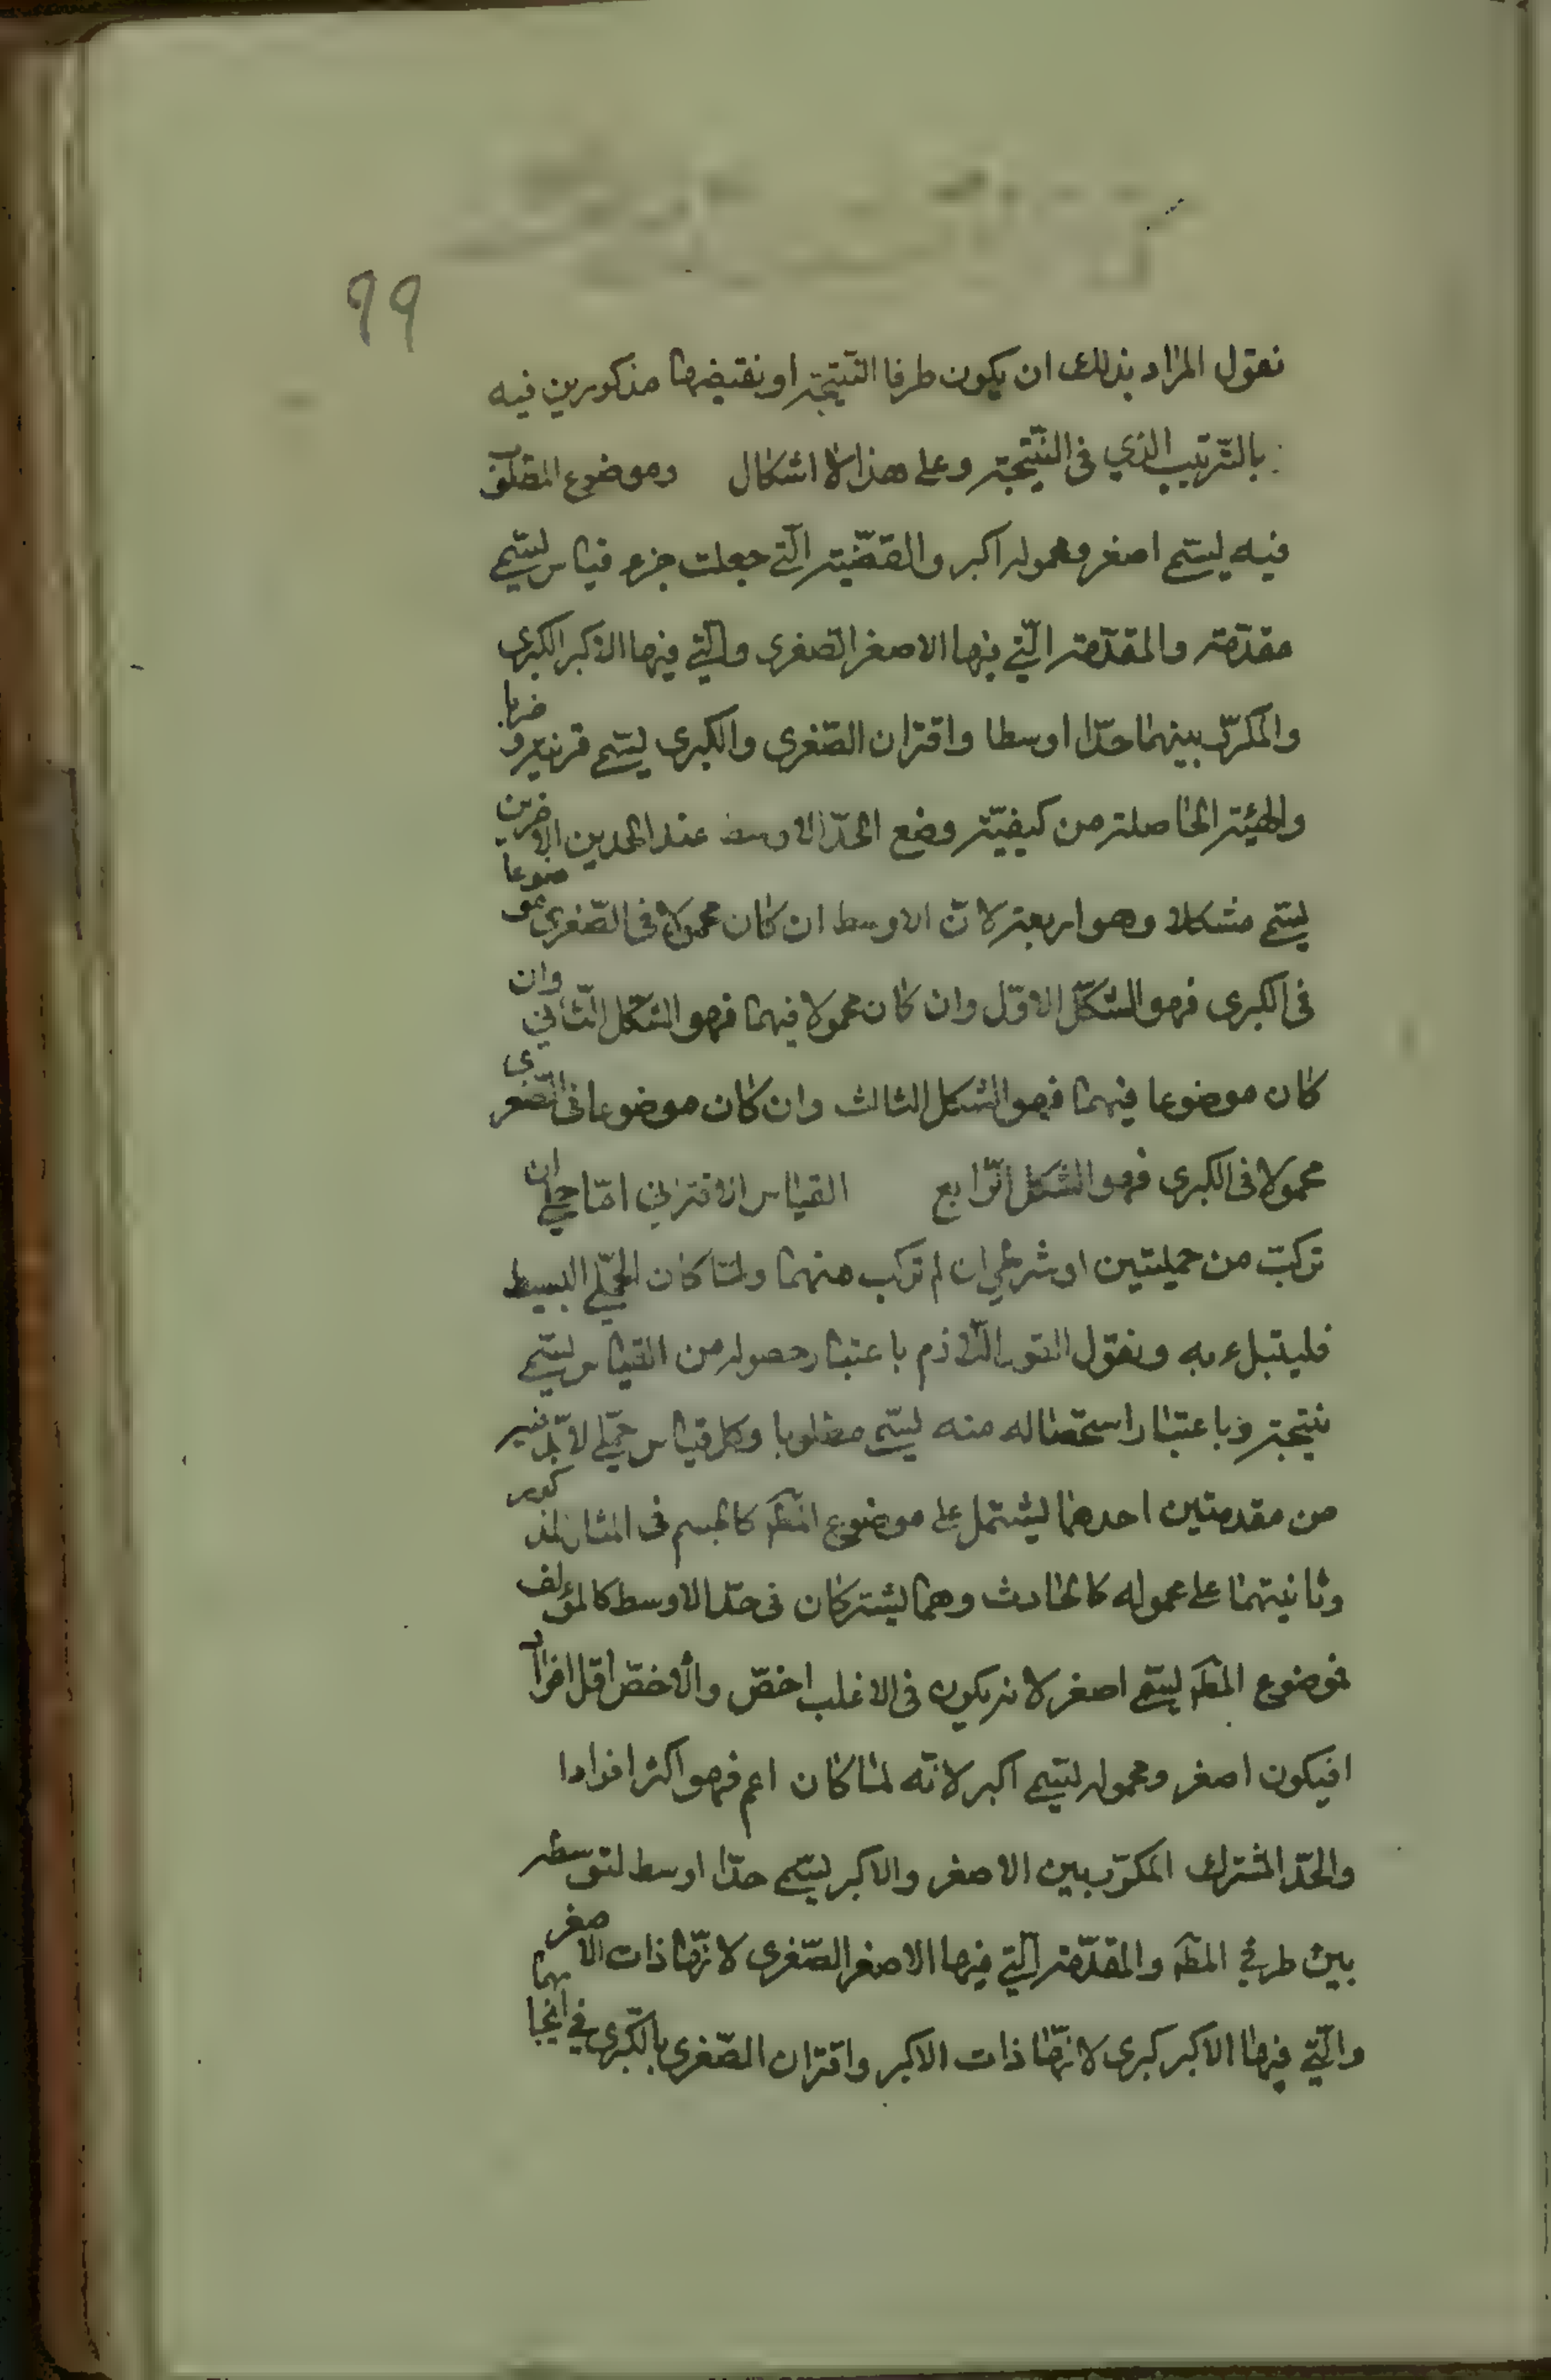 ٩٩
نقول المراد بذلك ان يكون طرفا النتيجة او نقيضها مذكورين فيه
بالترتيب الذي فى النتيجة وعلى هذا لا اشكال وموضوع المطلوب
فيه يسمى اصغر ومحموله اكبر والقضية التى جعلت جزء قياس يسمى
مقدمة والمقدمة التى فيها الاصغر الصغرى والتى فيها الاكبر الكبرى
والمكرر بينهما حدا اوسطا واقتران الصغرى والكبرى يسمى قرينة و ضربا
والهيئة الحاصلة من كيفية وضع الحد الاوسط عند الحدين الاخرين
يسمى شكلا وهو اربعة لان الاوسط ان كان محمولا فى الصغرى موضوعا
فى الكبرى فهو الشكل الاول وان كان محمولا فيهما فهو الشكل الثاني وان
كان موضوعا فيهما فهو الشكل الثالث وان كان موضوعا فى الصغرى
محمولا فى الكبرى فهو الشكل الرابع القياس الاقتراني اما حملي ان
تركب من حمليتين او شرطي ان لم تركب منهما ولما كان الحملي البسيط
فليبتدء به ونقول القول اللازم باعتبار حصوله من القياس يسمى
نتيجة وباعتبار استحصاله منه يسمى مطلوبا وكل قياس حملي لا بد فيه
من مقدمتين احدهما يشتمل على موضوع المط كالجسم فى المثال المذكور
وثانيتهما على محموله كالحادث وهما يشتركان فى حد الاوسط كالمؤلف
فموضوع المط يسمى اصغر لانه يكون فى الاغلب اخص والاخص اقل افرادا
افيكون اصغر ومحموله يسمى اكبر لانه لما كان اعم فهو اكثر افرادا
والحد المشترك المكرر بين الاصغر والاكبر يسمى حدا اوسط لتوسطه
بين طرفي المط والمقدمة التى فيها الاصغر الصغرى لانها ذات الاصغر
والتى فيها الاكبر كبرى لانها ذات الاكبر واقتران الصغرى بالكبرى في ايجابهما